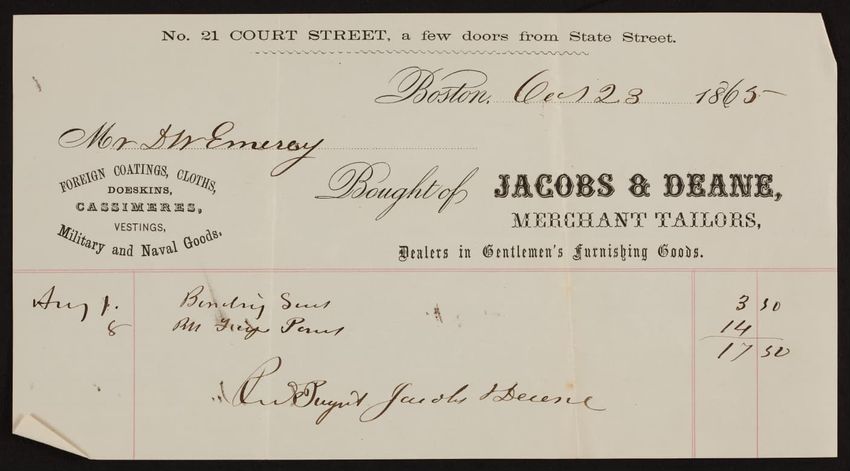 No. 21 COURT STREET, a few doors from State Street.
Boston. Oct 23 1865
Mr D W Emeray
FOREIGN COATINGS, CLOTHS,
DOESKINS,
CASSIMERES,
VESTINGS,
Military and Naval Goods.
Bought of JACOBS & DEANE,
MERCHANT TAILORS,
Dealers in Gentlemen's Furnishing Goods.
Aug 1. Binding 3 50
8 14
17 50
Jacobs & Deane